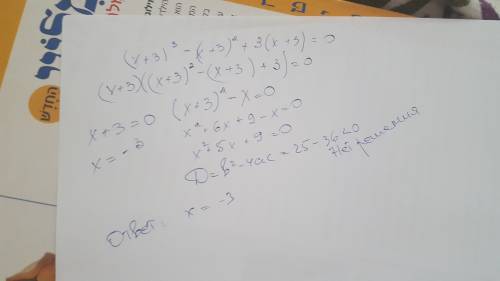 (x+3)³ - (x+3)² + 3(x+3) = 0
(x+3)((x+3)² - (x+3) + 3) = 0
x+3=0 (x+3)² - x = 0
x = -3 x² + 6x + 9 - x = 0
x² + 5x + 9 = 0
D = b² - 4ac = 25 - 36 < 0
Нет решения
Ответ: x = -3